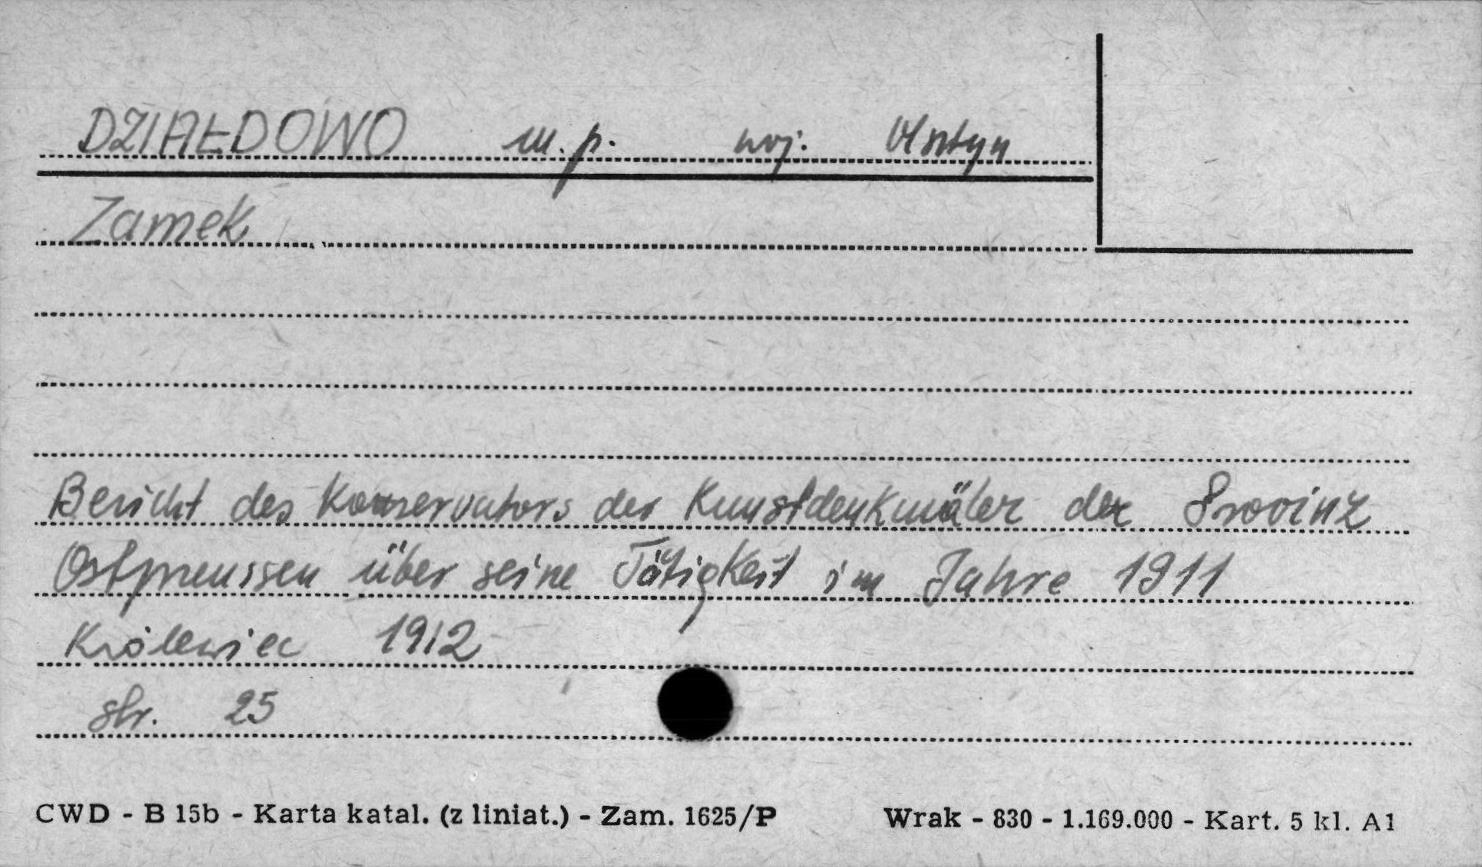 DZIAŁDOWO m.p. woj. Olsztyn
Zamek
Bericht des Konservators der Kunstdenkmäler der Provinz
Ostpreussen über seine Tätigkeit im Jahre 1911
Królewiec 1912
str. 25
CWD - B 15b - Karta katal. (z liniat.) - Zam. 1625/P Wrak - 830 - 1.169.000 - Kart. 5 kl. A1